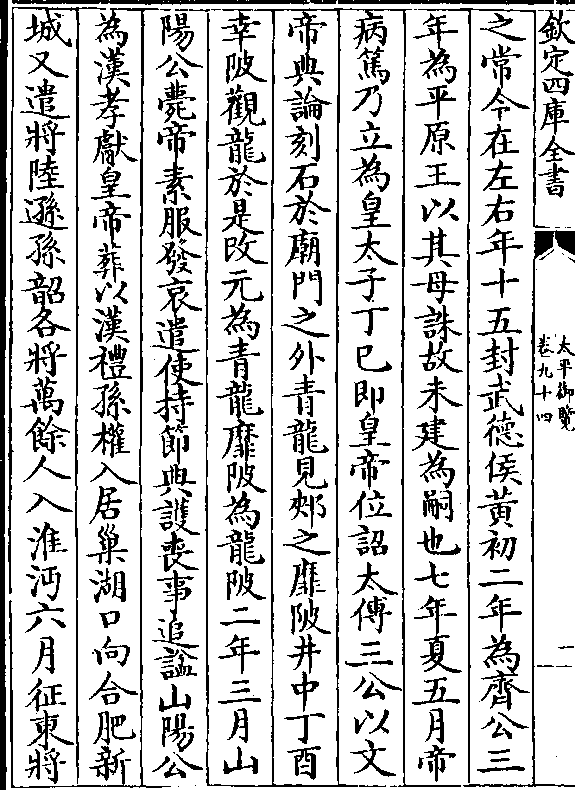 欽定四庫全書
太平御覽
卷九十四
一
之常令在左右年十五封武德侯黃初二年為齊公三
年為平原王以其母誅故未建為嗣也七年夏五月帝
病篤乃立為皇太子丁巳即皇帝位詔太傅三公以文
帝典論刻石於廟門之外青龍見郟之靡陂井中丁酉
幸陂觀龍於是改元為青龍靡陂為龍陂二年三月山
陽公薨帝素服發哀遣使持節典護喪事追諡山陽公
為漢孝獻皇帝葬以漢禮孫權入居巢湖口向合肥新
城又遣將陸遜孫韶各將萬餘人入淮沔六月征東將